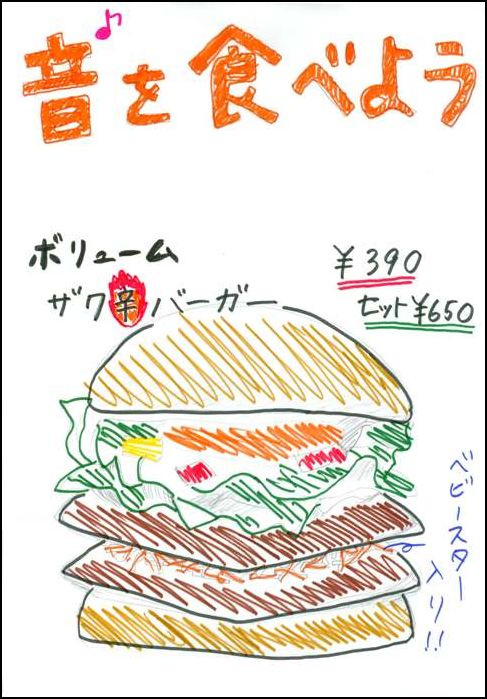 音を食べよう
ボリューム
ザク辛バーガー
¥390
セット¥650
ベビースター
入り!!